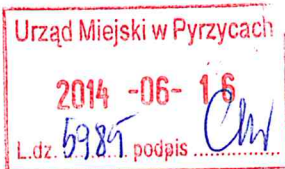 Urząd Miejski w Pyrzycach
2014 -06- 16
L.dz. 5985 podpis